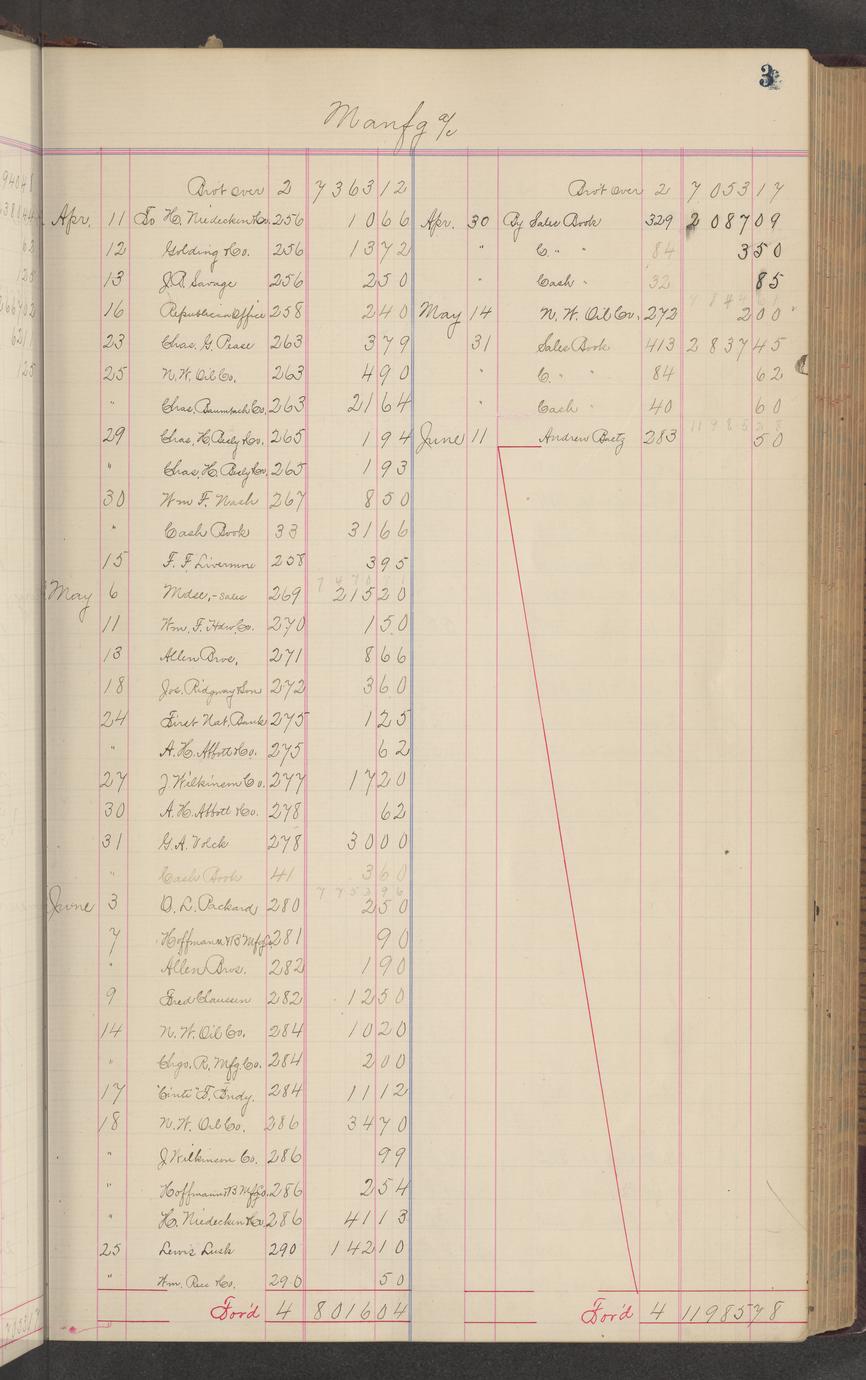 3
Manfg a/c
Brot over 2 7363 12
Apr. 11 To H. Niedecken & Co. 256 10 66
12 Golding & Co. 256 13 72
13 J.R. Savage 256 2 50
16 Republican Office 258 2 40
23 Chas. G. Pease 263 3 79
25 N.W. Oil Co. 263 4 90
" Chas. Baumbach Co. 263 21 64
29 Chas. H. Besly & Co. 265 1 94
" Chas. H. Besly & Co. 265 1 93
30 Wm F. Nash 267 8 50
" Cash Book 33 31 66
15 F. F. Livermore 258 3 95
May 6 Mdse,-sales 269 215 20
11 Wm. F. Hdw. Co. 270 1 50
13 Allen Bros. 271 8 66
18 Jos. Ridgway & Son 272 3 60
24 First Nat. Bank 275 1 25
" A.H. Abbott & Co. 275 62
27 J. Wilkinson Co. 277 17 20
30 A.H. Abbott & Co. 278 62
31 G.A. Volck 278 30 00
" Cash Book 41 3 60
7753 96
June 3 O.L. Packard 280 2 50
7 Hoffmann & B Mfg Co. 281 90
" Allen Bros. 282 1 90
9 Fred Claussen 282 12 50
14 N.W. Oil Co. 284 10 20
" Chgo. R. Mfg. Co. 284 2 00
17 "Cinti" T. Fndy. 284 11 12
18 N.W. Oil Co. 286 34 70
" J. Wilkinson Co. 286 99
" Hoffmann & B Mfg Co. 286 2 54
" H. Niedecken & Co. 286 41 13
25 Lewis Lusk 290 142 10
" Wm. Rice & Co. 290 50
For'd 4 8016 04
Brot over 2 7053 17
Apr. 30 By Sales Book 329 2087 09
" C. " " 84 3 50
" Cash " 32 85
May 14 N. W. Oil Co. 272 2 00
31 Sales Book 413 2837 45
" C. " " 84 62
" Cash " 40 60
June 11 Andrew Baetz 283 50
For'd 4 11985 78